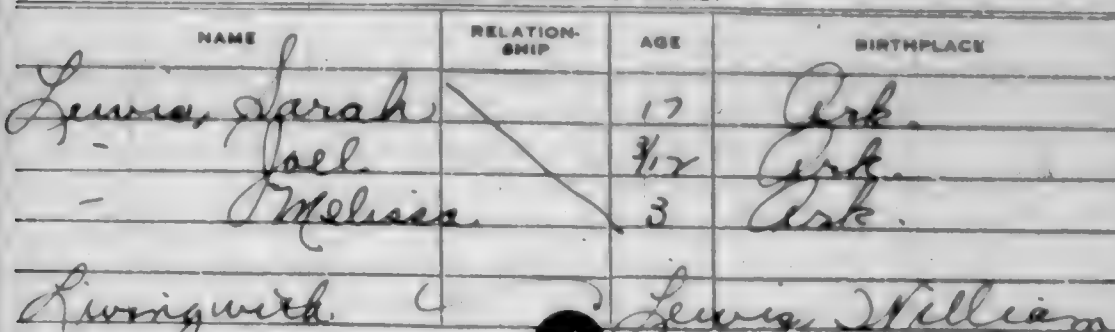 NAME RELATION-SHIP AGE BIRTHPLACE
Lewis, Sarah 17 Ark.
- Joel 3/12 Ark.
- Melissa 3 Ark.
Living with ( ) Lewis, William